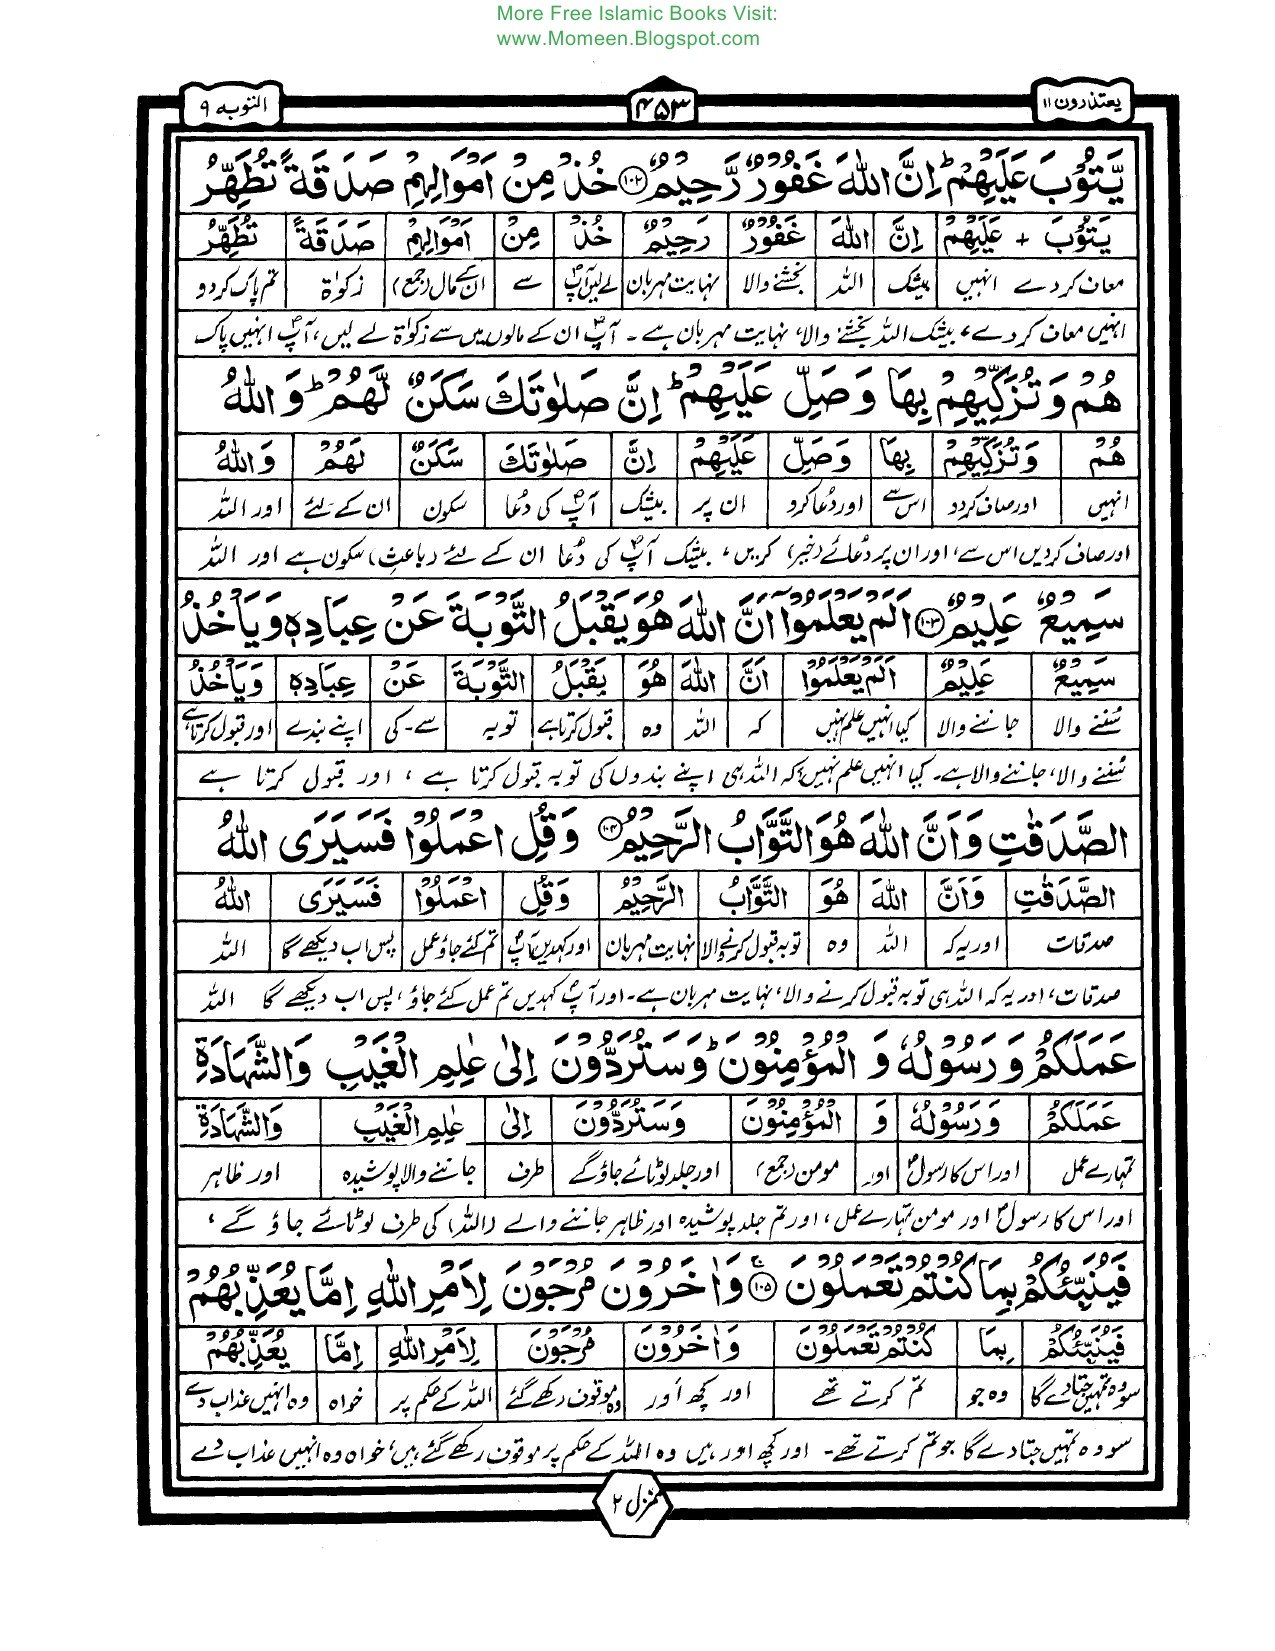 More Free Islamic Books Visit:
www.Momeen.Blogspot.com
يعتذرون ۱۱ ۴۵۳ التوبه ۹
يَّتُوْبَ عَلَيْهِمْ ؕ اِنَّ اللّٰهَ غَفُوْرٌ رَّحِيْمٌ ﴿۱۰۲﴾ خُذْ مِنْ اَمْوَالِهِمْ صَدَقَةً تُطَهِّرُ
يَتُوْبَ + عَلَيْهِمْ اِنَّ اللّٰهَ غَفُوْرٌ رَحِيْمٌ خُذْ مِنْ اَمْوَالِهِمْ صَدَقَةً تُطَهِّرُ
معاف کردے انہیں بیشک اللہ بخشنے والا نہایت مہربان لے لیں آپؐ سے ان کے مال (جمع) زکوٰۃ تم پاک کردو
انہیں معاف کر دے، بیشک اللہ بخشنے والا، نہایت مہربان ہے ۔ آپؐ ان کے مالوں میں سے زکوٰۃ لے لیں، آپؐ انہیں پاک
هُمْ وَتُزَكِّيْهِمْ بِهَا وَصَلِّ عَلَيْهِمْ ؕ اِنَّ صَلٰوتَكَ سَكَنٌ لَّهُمْ ؕ وَاللّٰهُ
هُمْ وَتُزَكِّيْهِمْ بِهَا وَصَلِّ عَلَيْهِمْ اِنَّ صَلٰوتَكَ سَكَنٌ لَهُمْ وَاللّٰهُ
انہیں اور صاف کردو اس سے اور دُعا کرو ان پر بیشک آپؐ کی دُعا سکون ان کے لئے اور اللہ
اور صاف کردیں اس سے، اور ان پر دُعائے (خیر) کریں، بیشک آپؐ کی دُعا ان کے لئے (باعثِ) سکون ہے اور اللہ
سَمِيْعٌ عَلِيْمٌ ﴿۱۰۳﴾ اَلَمْ يَعْلَمُوْۤا اَنَّ اللّٰهَ هُوَ يَقْبَلُ التَّوْبَةَ عَنْ عِبَادِهٖ وَيَاْخُذُ
سَمِيْعٌ عَلِيْمٌ اَلَمْ يَعْلَمُوْا اَنَّ اللّٰهَ هُوَ يَقْبَلُ التَّوْبَةَ عَنْ عِبَادِهٖ وَيَاْخُذُ
سُننے والا جاننے والا کیا انہیں علم نہیں کہ اللہ وہ قبول کرتا ہے توبہ سے-کی اپنے بندے اور قبول کرتا ہے
سُننے والا، جاننے والا ہے۔ کیا انہیں علم نہیں؟ کہ اللہ ہی اپنے بندوں کی توبہ قبول کرتا ہے، اور قبول کرتا ہے
الصَّدَقٰتِ وَاَنَّ اللّٰهَ هُوَ التَّوَّابُ الرَّحِيْمُ ﴿۱۰۴﴾ وَقُلِ اعْمَلُوْا فَسَيَرَى اللّٰهُ
الصَّدَقٰتِ وَاَنَّ اللّٰهَ هُوَ التَّوَّابُ الرَّحِيْمُ وَقُلِ اعْمَلُوْا فَسَيَرَى اللّٰهُ
صدقات اور یہ کہ اللہ وہ توبہ قبول کرنے والا نہایت مہربان اور کہدیں آپؐ تم کئے جاؤ عمل پس اب دیکھے گا اللہ
صدقات، اور یہ کہ اللہ ہی توبہ قبول کرنے والا، نہایت مہربان ہے۔ اور آپؐ کہدیں تم عمل کئے جاؤ، پس اب دیکھے گا اللہ
عَمَلَكُمْ وَرَسُوْلُهٗ وَ الْمُؤْمِنُوْنَ ؕ وَسَتُرَدُّوْنَ اِلٰى عٰلِمِ الْغَيْبِ وَالشَّهَادَةِ
عَمَلَكُمْ وَرَسُوْلُهٗ وَ الْمُؤْمِنُوْنَ وَسَتُرَدُّوْنَ اِلٰى عٰلِمِ الْغَيْبِ وَالشَّهَادَةِ
تمہارے عمل اور اس کا رسولؐ اور مومن (جمع) اور جلد لوٹائے جاؤ گے طرف جاننے والا پوشیدہ اور ظاہر
اور اس کا رسولؐ اور مومن تمہارے عمل، اور تم جلد پوشیدہ اور ظاہر جاننے والے (اللہ) کی طرف لوٹائے جاؤ گے،
فَيُنَبِّئُكُمْ بِمَا كُنْتُمْ تَعْمَلُوْنَ ﴿۱۰۵﴾ وَاٰخَرُوْنَ مُرْجَوْنَ لِاَمْرِ اللّٰهِ اِمَّا يُعَذِّبُهُمْ
فَيُنَبِّئُكُمْ بِمَا كُنْتُمْ تَعْمَلُوْنَ وَاٰخَرُوْنَ مُرْجَوْنَ لِاَمْرِ اللّٰهِ اِمَّا يُعَذِّبُهُمْ
سو وہ تمہیں جتا دے گا وہ جو تم کرتے تھے اور کچھ اَور وہ موقوف رکھے گئے اللہ کے حکم پر خواہ وہ انہیں عذاب دے
سو وہ تمہیں جتا دے گا جو تم کرتے تھے۔ اور کچھ اور ہیں وہ اللہ کے حکم پر موقوف رکھے گئے ہیں، خواہ وہ انہیں عذاب دے
منزل ۲